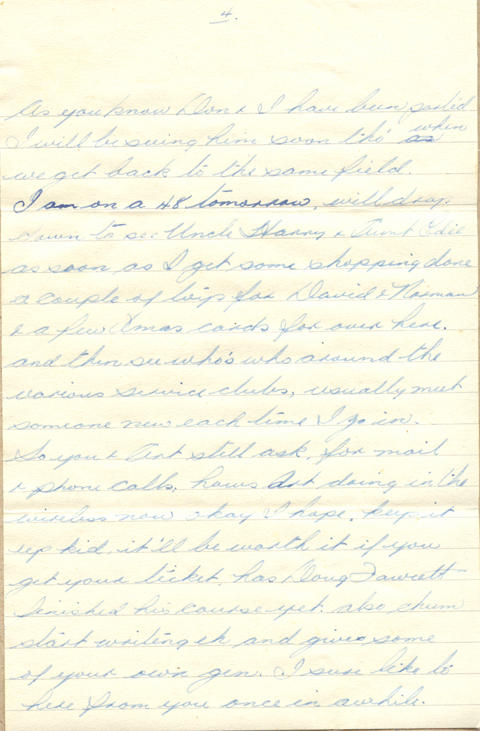 4.
As you know Don & I have been parted
I will be seeing him soon tho' as when
we get back to the same field.
I am on a 48 tomorrow, will drop
down to see Uncle Harry & Aunt Edie
as soon as I get some shopping done
a couple of for David & Norman
& a few Xmas cards for over here.
and then see who's who around the
various service clubs, usually meet
someone new each time I go in.
So you & Art still ask for mail
& phone calls, hows Art doing in the
wireless now okay I hope, keep it
up kid, it'll be worth it if you
get your ticket, has Doug Fawcett
finished his course yet. also chum
start writing eh and give some
of your own gen. I sure like to
here from you once in awhile.